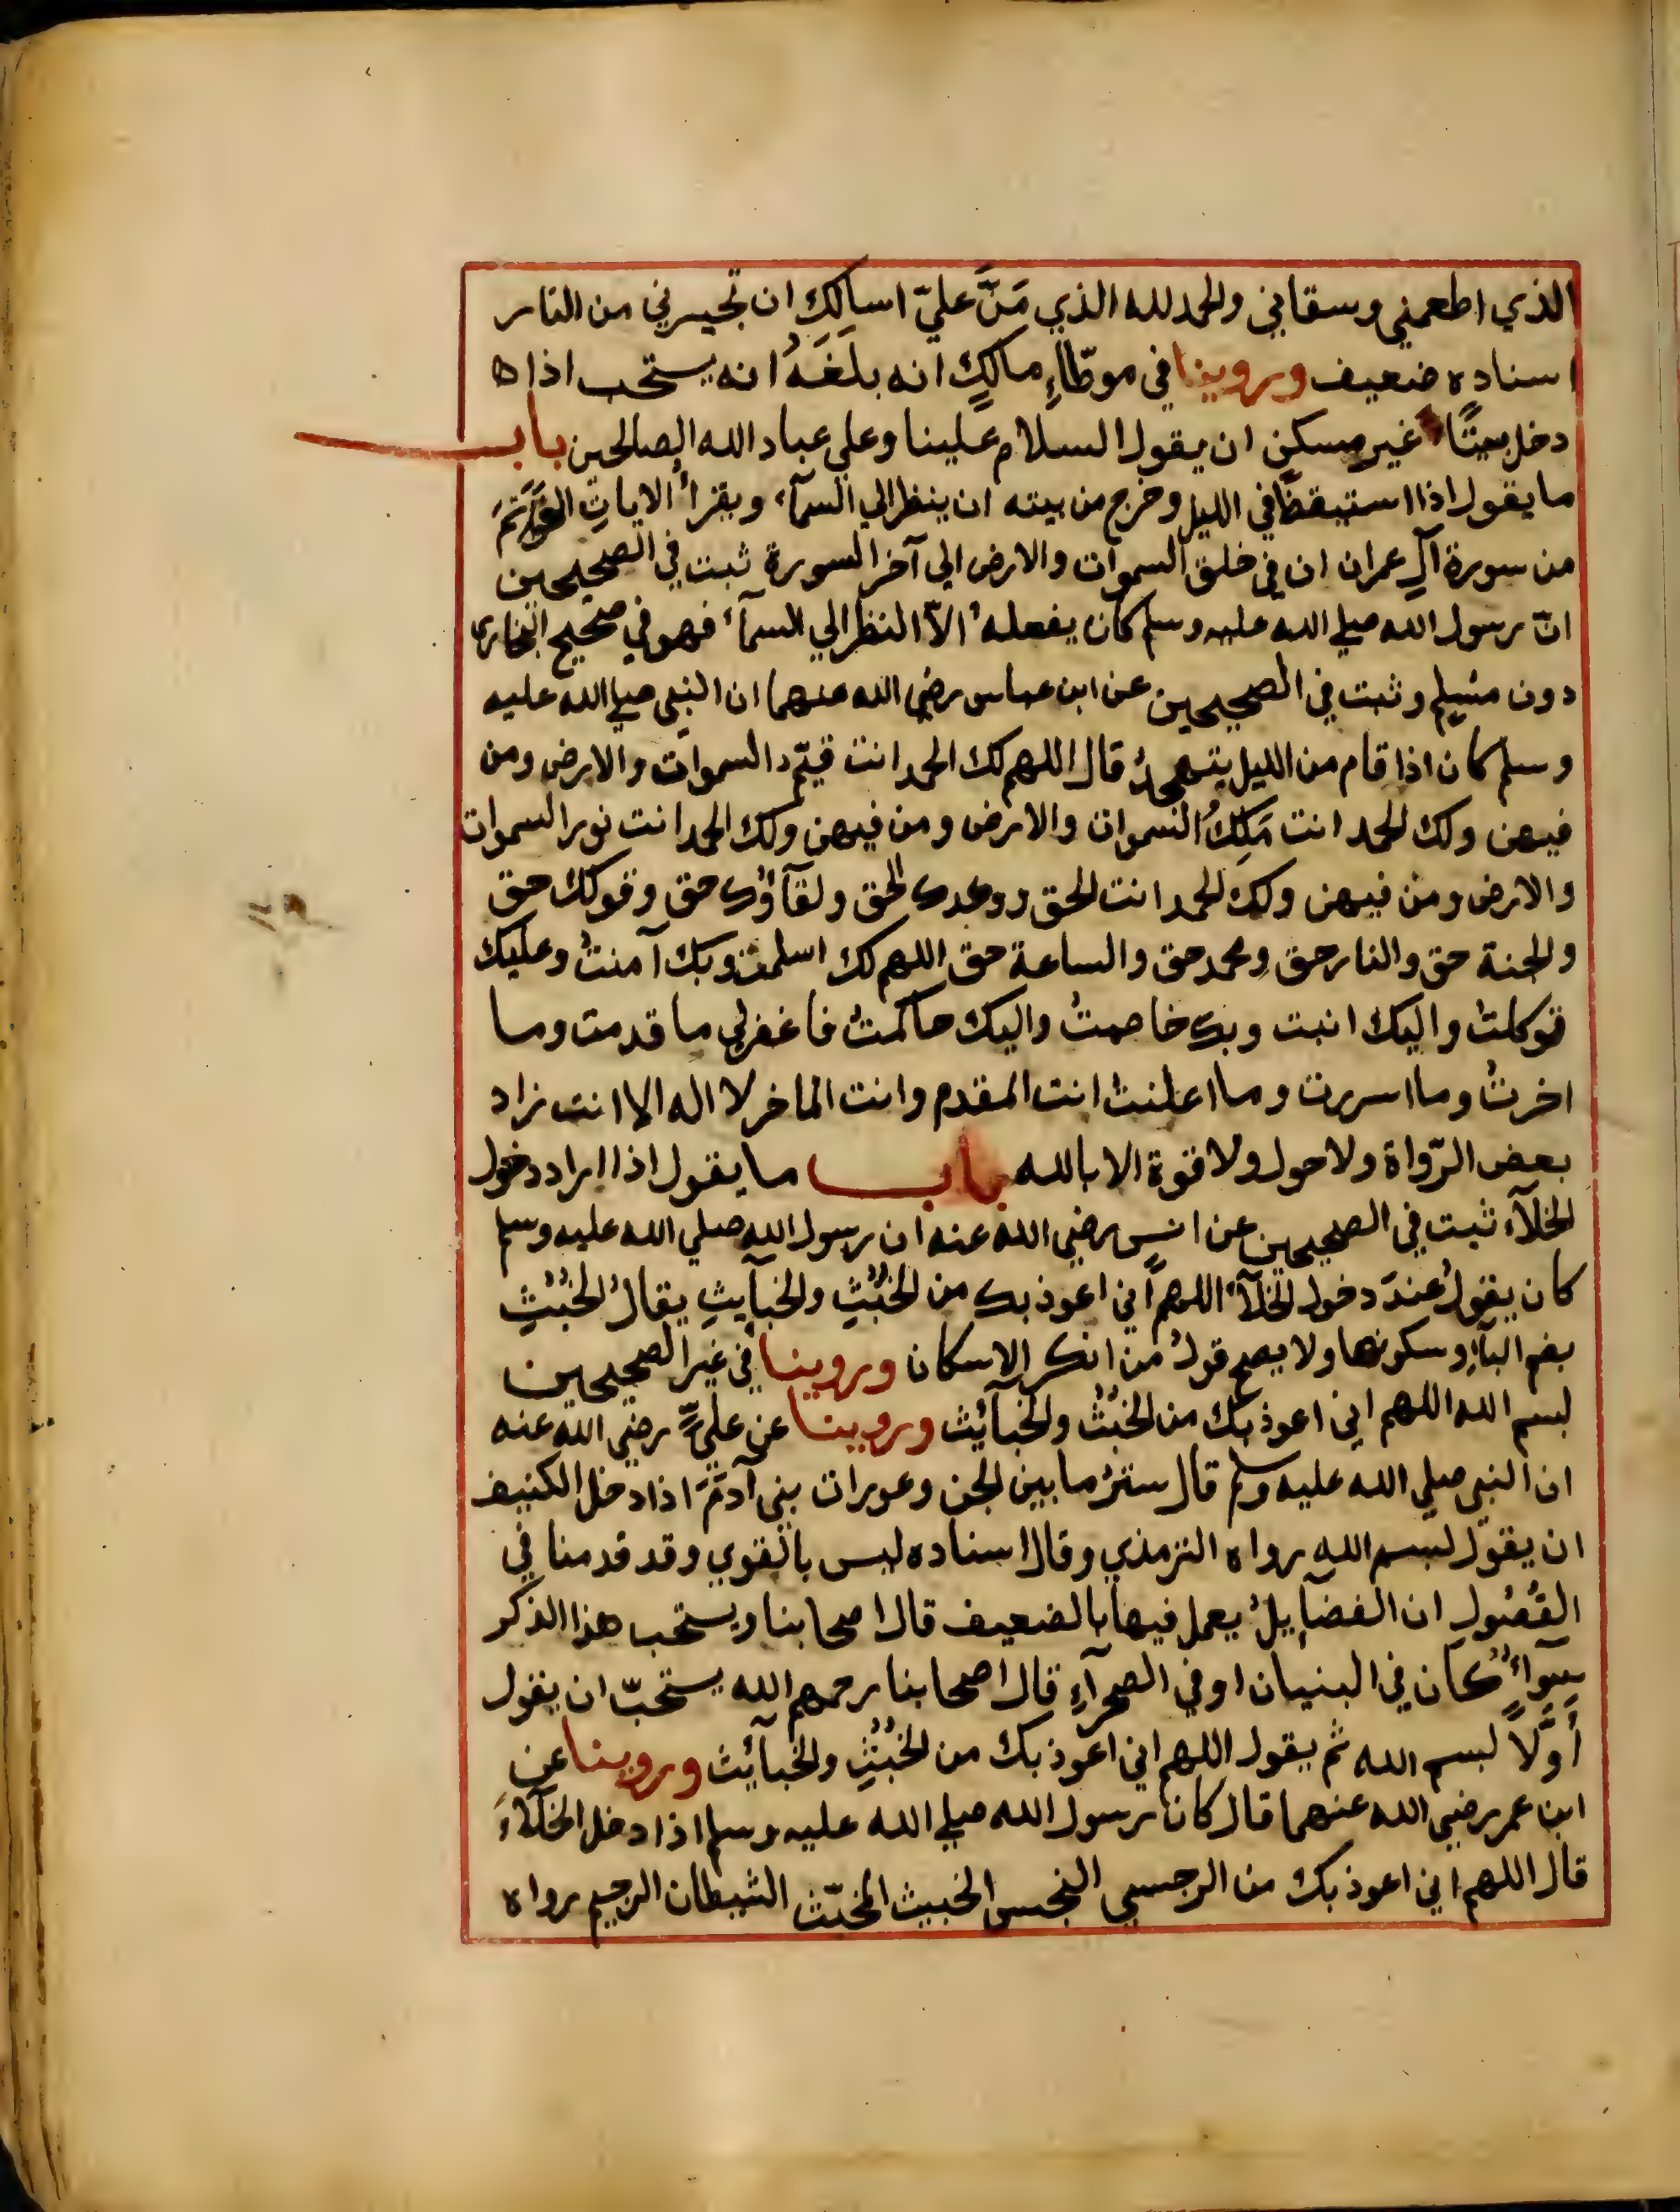 الذي اطعمني وسقاني والحمد لله الذي مَنَّ عليّ اسألكَ ان تجيرني من النار
اسناده ضعيف وروينا في موطّاءِ مالكٍ انه بلغَهُ انه يستحب اذا ه
دخل بيتًا غير مسكن ان يقول السلام علينا وعلي عباد الله الصالحين باب
ما يقول اذا استيقظ في الليل وخرج من بيته ان ينظر الي السمآء ويقرأُ الاياتِ الخواتمَ
من سورة آلِ عمران ان في خلق السموات والارض الي آخر السورة ثبت في الصحيحين
انّ رسول الله صلي الله عليه وسلم كان يفعلهُ الاّ النظر الي السمآء فهو في صحيح البخاري
دون مسلم وثبت في الصحيحين عن ابن عباس رضي الله عنهما ان النبي صلي الله عليه
وسلم كان اذا قام من الليل يتهجدُ قال اللهم لك الحمد انت قيّم السموات والارض ومن
فيهن ولك الحمد انت مَلِكُ السموات والارض ومن فيهن ولك الحمد انت نور السموات
والارض ومن فيهن ولك الحمد انت الحق ووعدك الحق ولقآؤك حق وقولك حق
والجنة حق والنار حق ومحمد حق والساعة حق اللهم لك اسلمت وبك آمنتُ وعليك
توكلتُ واليك انبت وبك خاصمتُ واليك حاكمتُ فاغفر لي ما قدمت وما
اخرتُ وما اسررت وما اعلنتُ انت المقدم وانت الماخر لا اله الا انت زاد
بعض الرّواة ولا حول ولا قوة الا بالله باب ما يقول اذا اراد دخول
الخلآء ثبت في الصحيحين عن انسٍ رضي الله عنه ان رسول الله صلي الله عليه وسلم
كان يقولُ عندَ دخول الخلآء اللهم اني اعوذ بك من الخُبُثِ والخبآيثِ يقالُ الخبُثِ
بضم البآءِ وسكونها ولا يصح قولُ من انكر الاسكان وروينا في غير الصحيحين
لبسم الله اللهم اني اعوذ بك من الخبُثْ والخبآئِث وروينا عن عليٍّ رضي الله عنه
ان النبي صلي الله عليه وسلم قال سترُ ما بين الجن وعورات بني آدمَ اذا دخل الكنيف
ان يقول لبسم الله رواه الترمذي وقال اسناده ليس بالقوي وقد قدمنا في
الفُصُولِ ان الفضآيلُ يعمل فيها بالضعيف قال اصحابنا ويستحب هذا الذكر
سوآءٌ كان في البنيان او في الصحرآءِ قال اصحابنا رحمهم الله يستحبّ ان يقول
أوّلاً لبسم الله ثم يقول اللهم اني اعوذ بك من الخُبُثِ والخبآيِث وروينا عن
ابن عمر رضي الله عنهما قال كان رسول الله صلي الله عليه وسلم اذا دخل الخلآءَ
قال اللهم اني اعوذ بك من الرجس النجس الخبيث المخبّث الشيطان الرجيم رواه